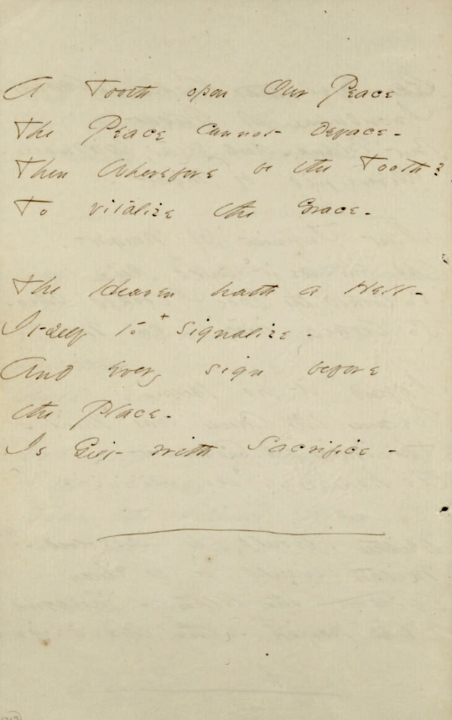 A Tooth upon Our Peace
The Peace cannot deface -
Then Wherefore be the Tooth?
To vitalize the Grace -
The Heaven hath a Hell -
Itself to + signalize -
And every sign before
the Place -
Is Gilt with Sacrifice -